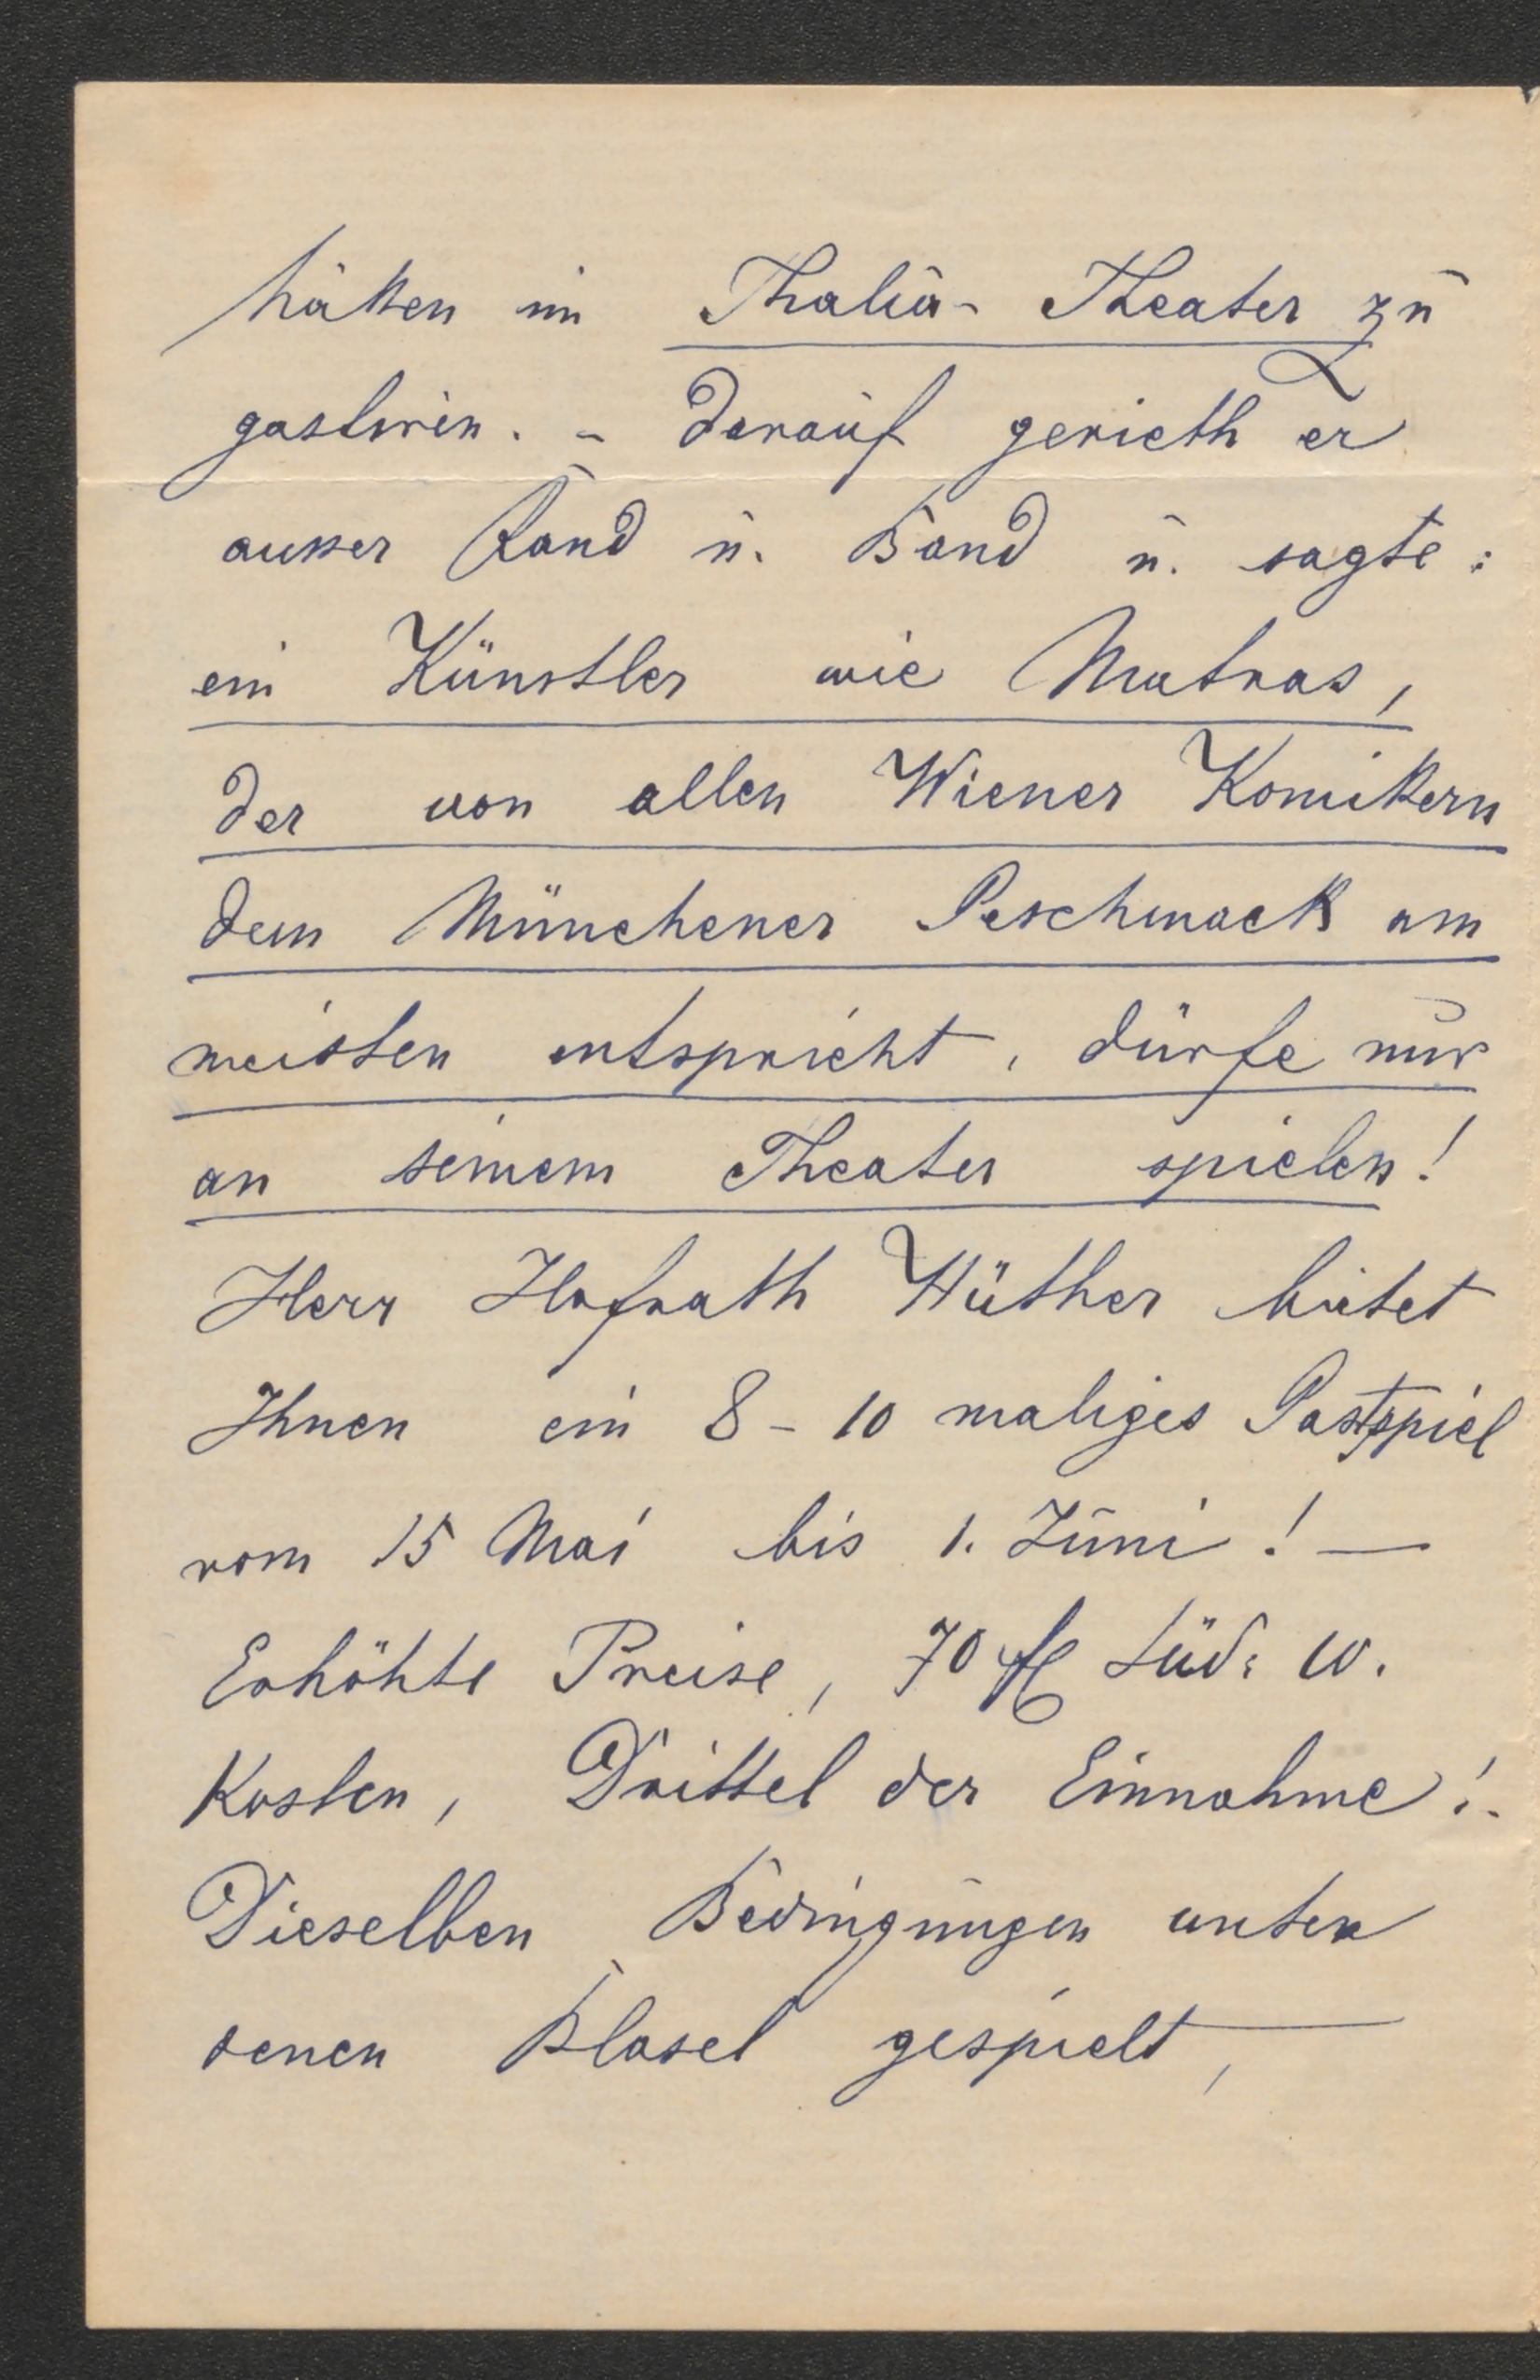 hätten im Thalia- Theater zu
gastiren. - Darauf gerieth er
ausser Rand u. Band u. sagte:
ein Künstler wie Matras,
der von allen Wiener Komikern
dem Münchener Geschmack am
meisten entspricht, dürfe nur
an seinem Theater spielen!
Herr Hofrath Hüther bietet
Ihnen ein 8 - 10 maliges Gastspiel
vom 15 Mai bis 1. Juni! —
Erhöhte Preise, 70 fl Süd: W.
Kosten, Drittel der Einnahme!-
Dieselben Bedingungen unter
denen Blasel gespielt,